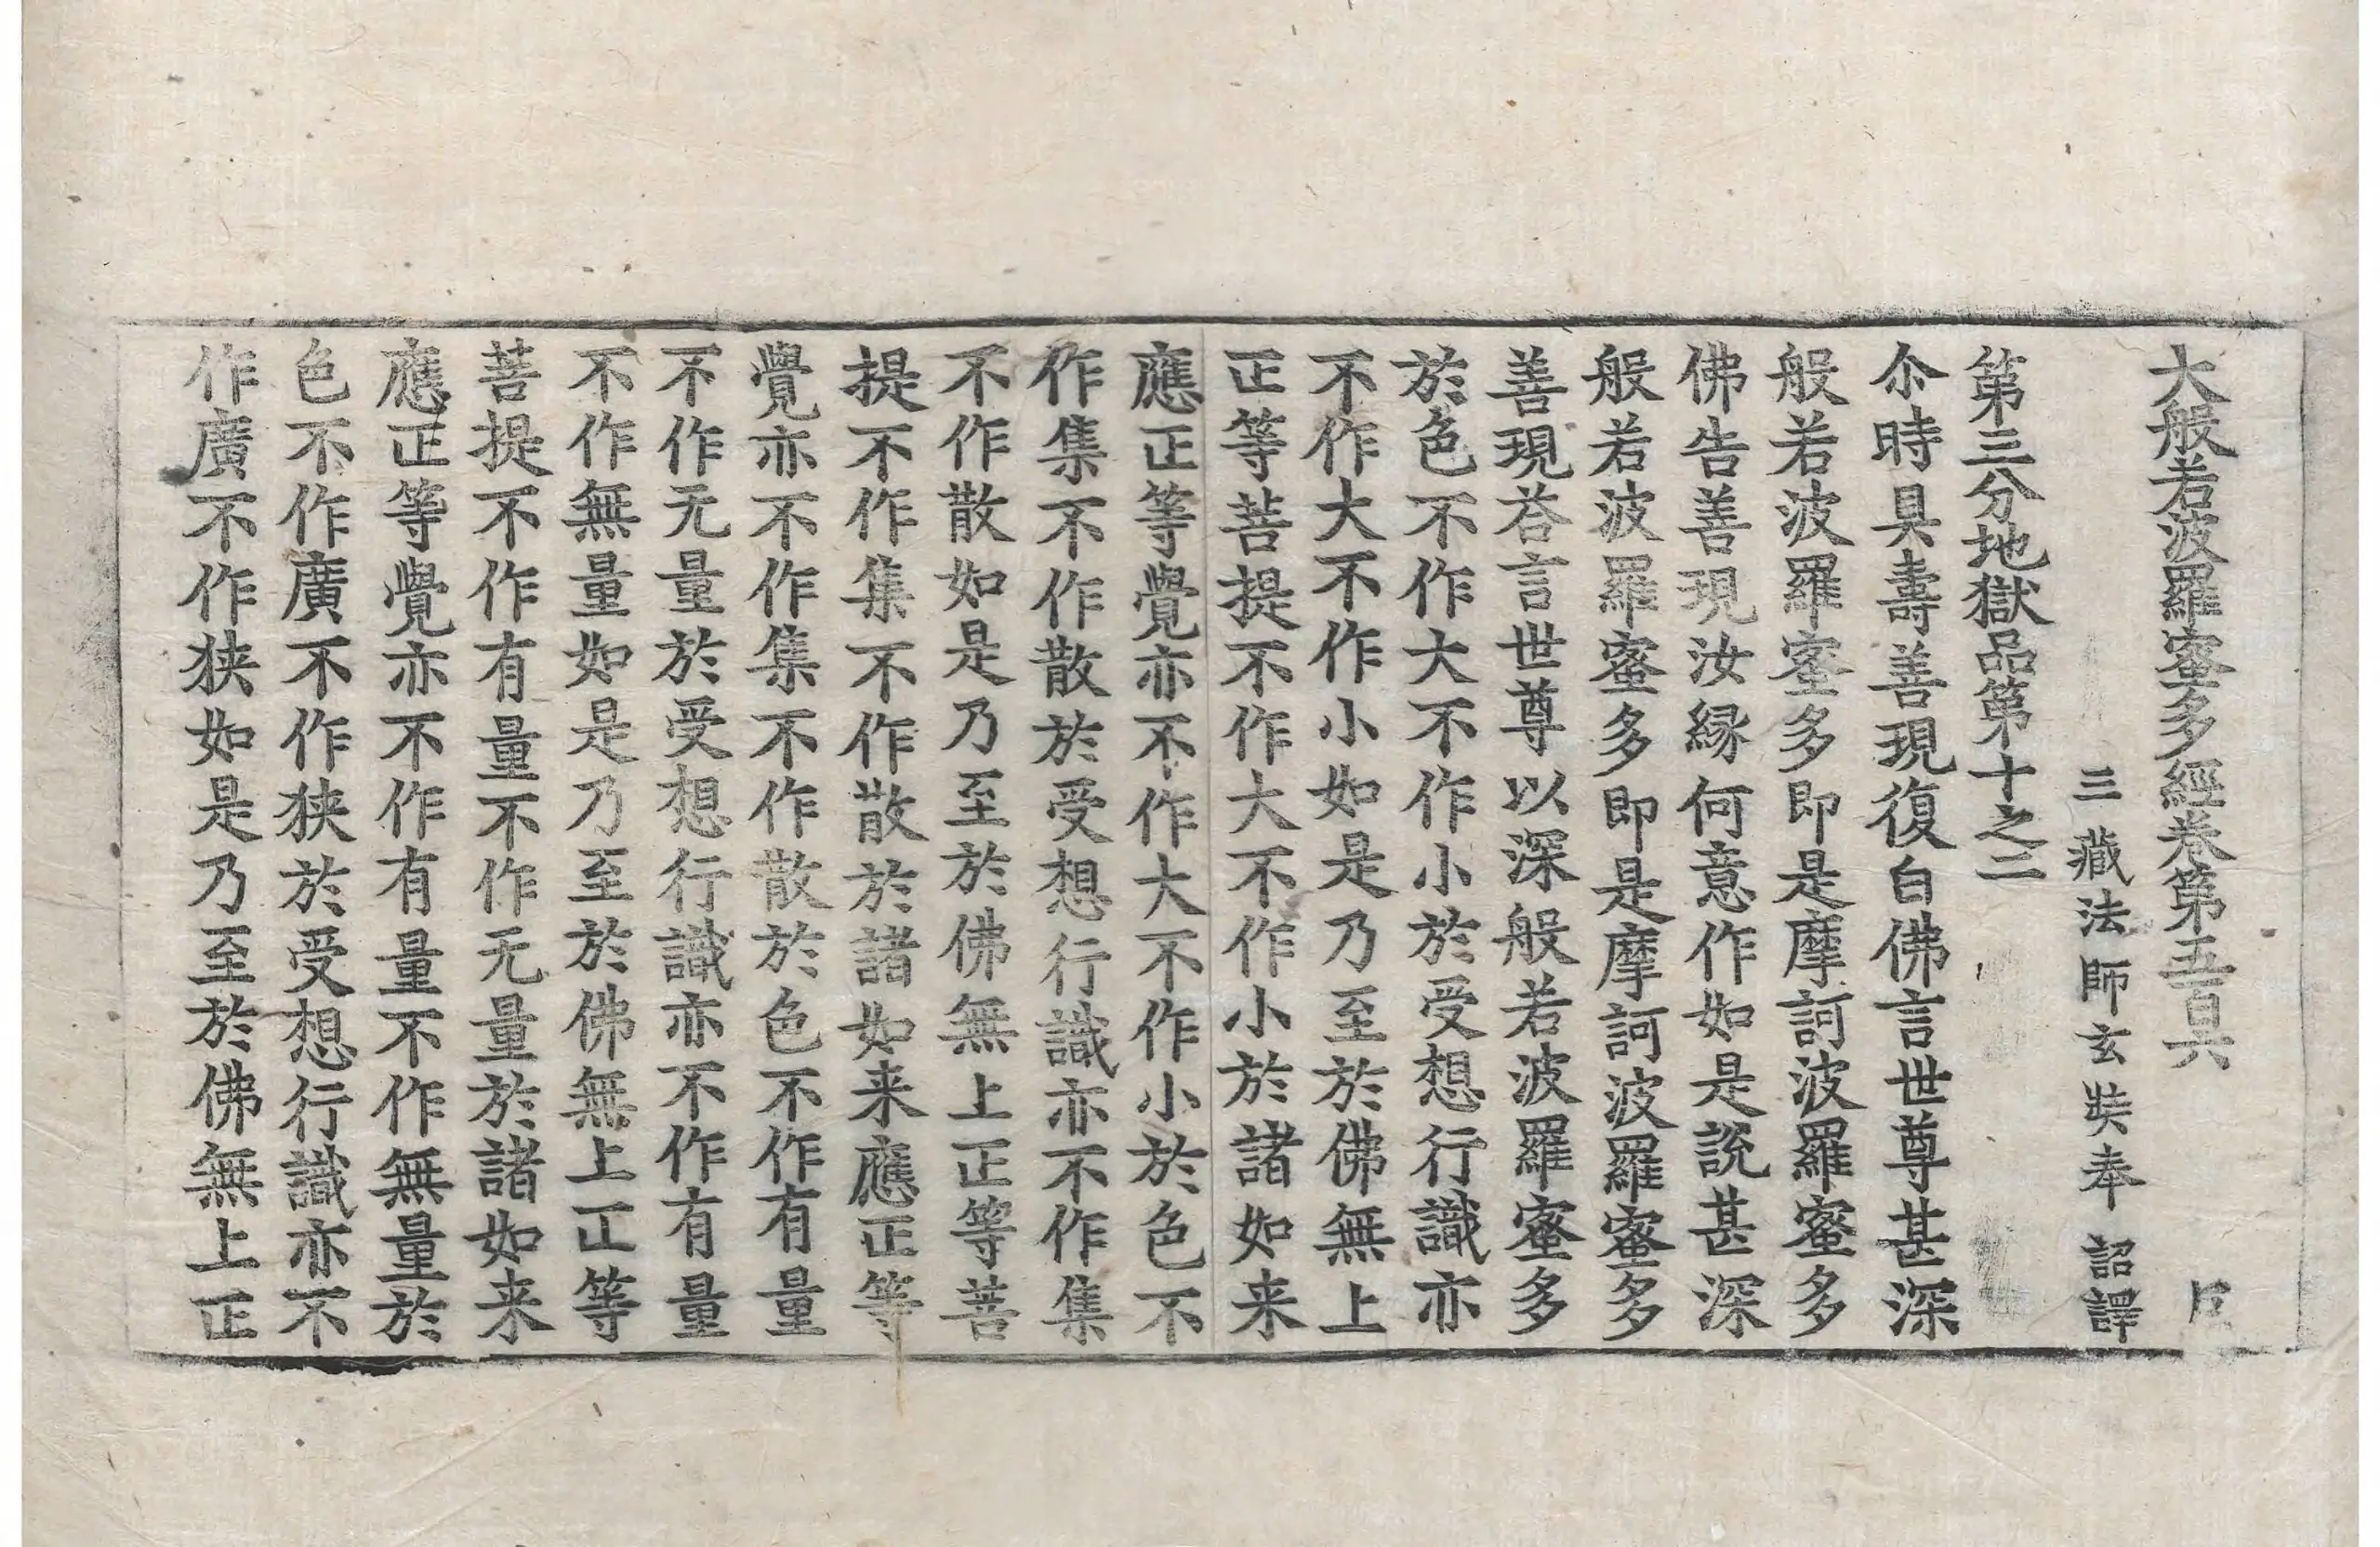 大般若波羅蜜多經卷第五百六
三藏法師玄奘奉 詔譯
第三分地獄品第十之二
尒時具壽善現復白佛言世尊甚深
般若波羅蜜多即是摩訶波羅蜜多
佛告善現汝縁何意作如是說甚深
般若波羅蜜多即是摩訶波羅蜜多
善現荅言世尊以深般若波羅蜜多
於色不作大不作小於受想行識亦
不作大不作小如是乃至於佛無上
正等菩提不作大不作小於諸如来
應正等覺亦不作大不作小於色不
作集不作散於受想行識亦不作集
不作散如是乃至於佛無上正等菩
提不作集不作散於諸如来應正等
覺亦不作集不作散於色不作有量
不作无量於受想行識亦不作有量
不作無量如是乃至於佛無上正等
菩提不作有量不作无量於諸如来
應正等覺亦不作有量不作無量於
色不作廣不作狭於受想行識亦不
作廣不作狭如是乃至於佛無上正